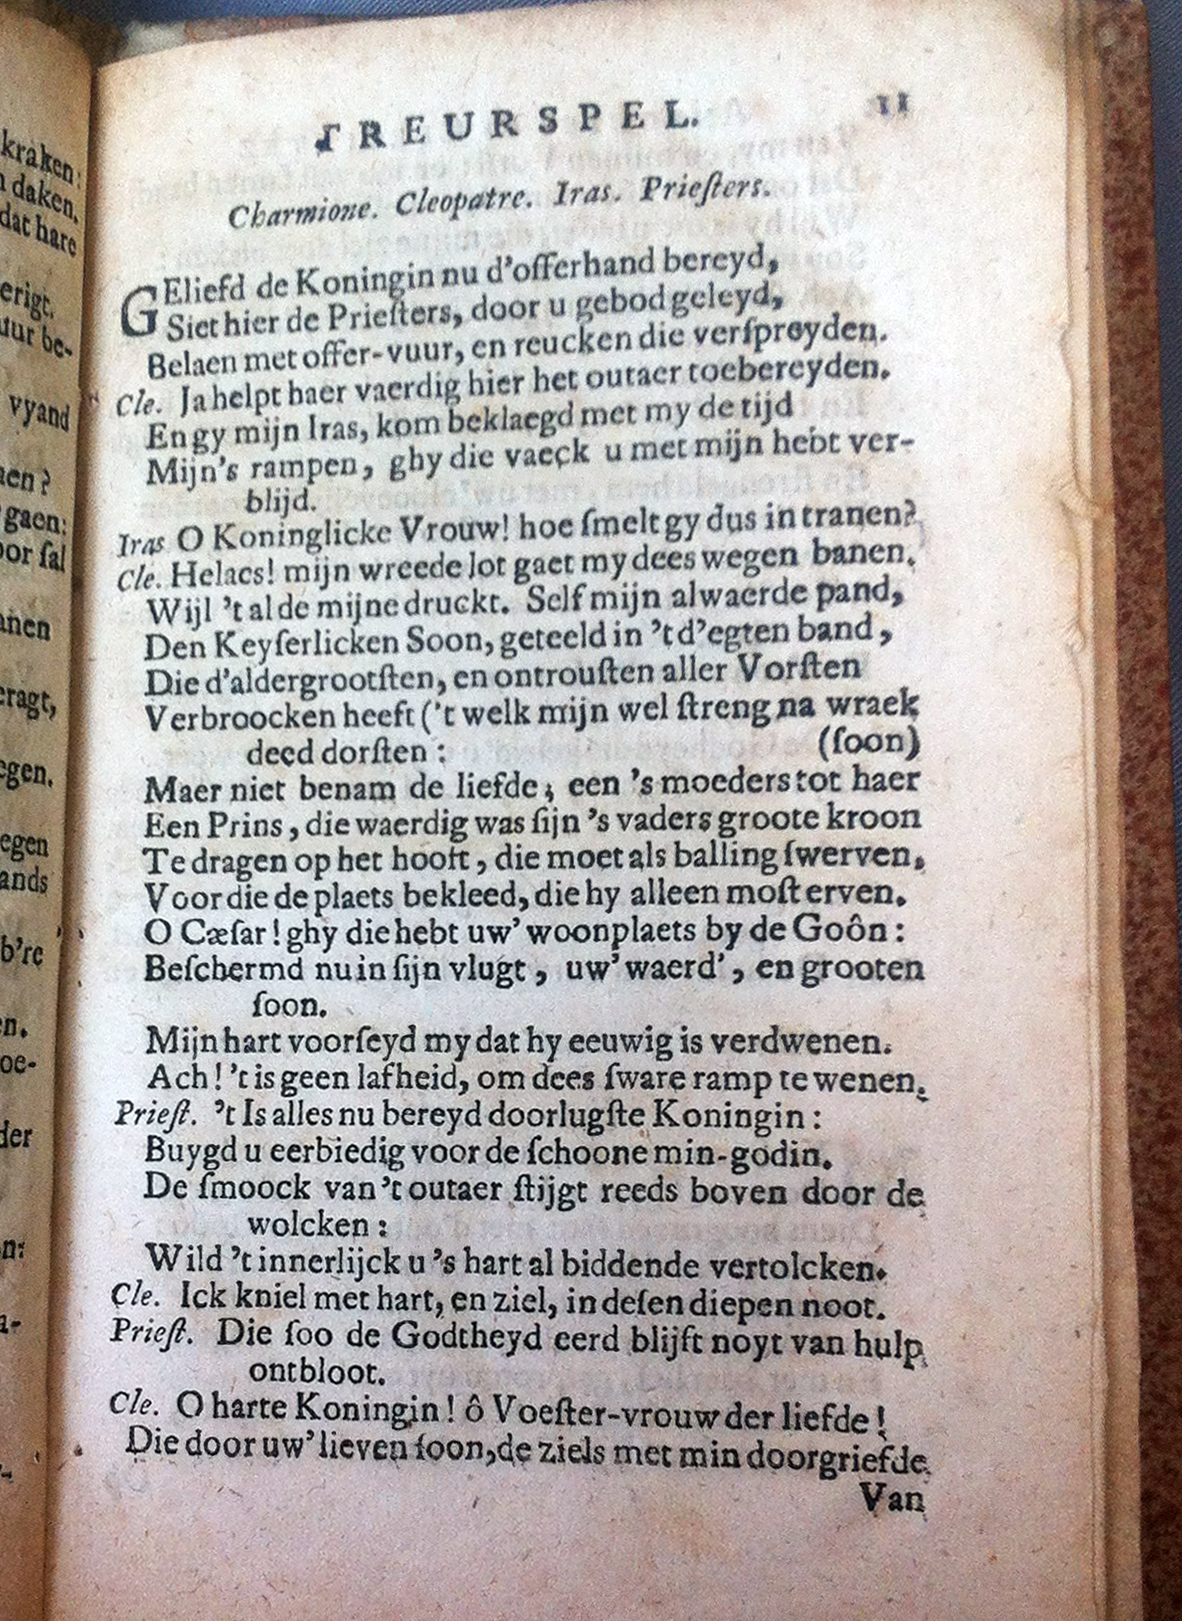 kraken:
daken.
dat hare
erigt.
uur be-
vyand
nen?
gaen:
oor ſal
anen
eragt,
egen.
egen
ands
b're
en.
oe-
der
n:
a-
TREURSPEL. 11
Charmione. Cleopatre. Iras. Prieſters.
GEliefd de Koningin nu d'offerhand bereyd,
Siet hier de Prieſters, door u gebod geleyd,
Belaen met offer-vuur, en reucken die verſpreyden.
Cle. Ja helpt haer vaerdig hier het outaer toebereyden.
En gy mijn Iras, kom beklaegd met my de tijd
Mijn's rampen, ghy die vaeck u met mijn hebt ver-
blijd.
Iras O Koninglicke Vrouw! hoe ſmelt gy dus in tranen?
Cle. Helaes! mijn wreede lot gaet my dees wegen banen.
Wijl 't al de mijne druckt. Self mijn alwaerde pand,
Den Keyſerlicken Soon, geteeld in 't d'egten band,
Die d'aldergrootſten, en ontrouſten aller Vorſten
Verbroocken heeft ('t welk mijn wel ſtreng na wraek
deed dorſten: (ſoon)
Maer niet benam de liefde; een 's moeders tot haer
Een Prins, die waerdig was ſijn 's vaders groote kroon
Te dragen op het hooft, die moet als balling ſwerven.
Voor die de plaets bekleed, die hy alleen moſt erven.
O Cæſar! ghy die hebt uw' woonplaets by de Goôn:
Beſchermd nu in ſijn vlugt, uw' waerd', en grooten
ſoon.
Mijn hart voorſeyd my dat hy eeuwig is verdwenen.
Ach! 't is geen lafheid, om dees ſware ramp te wenen.
Prieſt. 't Is alles nu bereyd doorlugſte Koningin:
Buygd u eerbiedig voor de ſchoone min-godin.
De ſmoock van 't outaer ſtijgt reeds boven door de
wolcken:
Wild 't innerlijck u 's hart al biddende vertolcken.
Cle. Ick kniel met hart, en ziel, in deſen diepen noot.
Prieſt. Die ſoo de Godtheyd eerd blijft noyt van hulp
ontbloot.
Cle. O harte Koningin! ô Voeſter-vrouw der liefde!
Die door uw' lieven ſoon, de ziels met min doorgriefde
Van